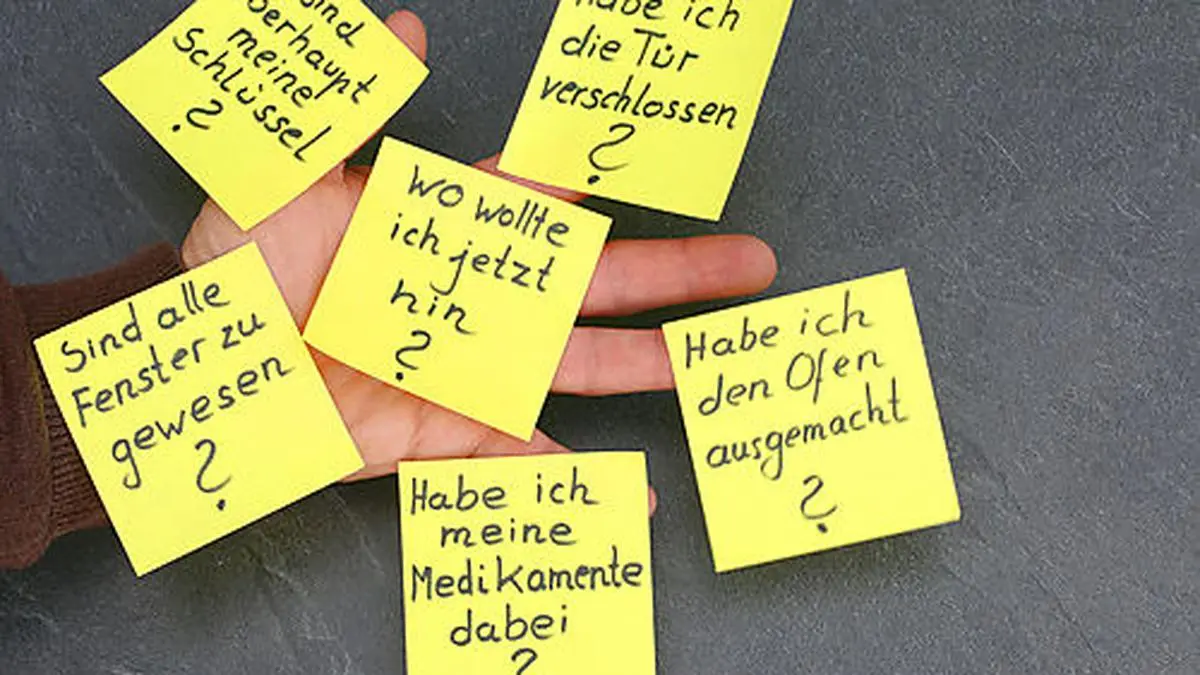 sind
überhaupt
meine
Schlüssel
?
Habe ich
die Tür
verschlossen
?
wo wollte
ich jetzt
hin
?
Sind alle
Fenster zu
gewesen
?
Habe ich
den Ofen
ausgemacht
?
Habe ich
meine
Medikamente
dabei
?